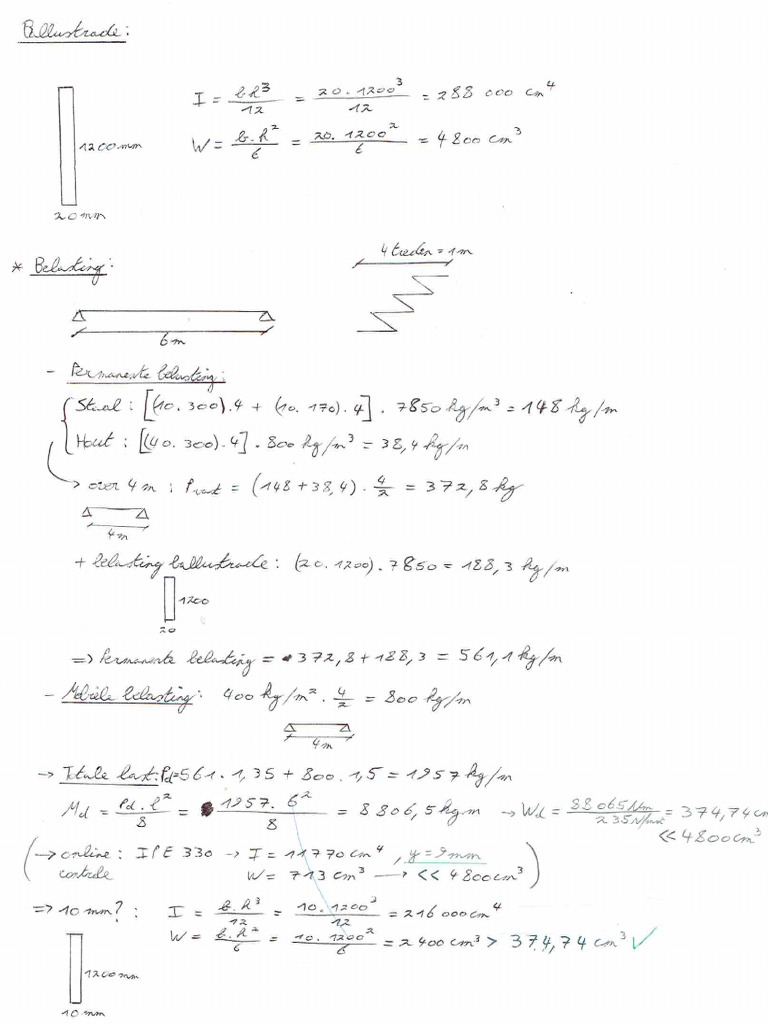 Ballustrade:
I = b.h³/12 = 20.1200³/12 = 288 000 cm⁴
1200mm
W = b.h²/6 = 20.1200²/6 = 4800 cm³
20mm
4 treden = 1m
* Belasting:
6m
- Permanente belasting:
Staal: [(10.300).4 + (10.170).4]. 7850 kg/m³ = 148 kg/m
Hout: [(40.300).4]. 800 kg/m³ = 38,4 kg/m
→ over 4m: Pvast = (148+38,4). 4/2 = 372,8 kg
4m
+ belasting ballustrade: (20.1200). 7850 = 188,3 kg/m
1200
20
=> Permanente belasting = 372,8 + 188,3 = 561,1 kg/m
- Mobiele belasting: 400 kg/m². 4/2 = 800 kg/m
4m
→ Totale last: Pd = 561. 1,35 + 800. 1,5 = 1957 kg/m
Md = Pd.l²/8 = 1957. 6²/8 = 8806,5 kgm → Wd = 88065 Nm/235 N/mm² = 374,74 cm
<< 4800 cm³
(→ online: IPE 330 → I = 11770 cm⁴, y = 9mm
controle W = 713 cm³ → << 4800 cm³)
=> 10 mm?: I = b.h³/12 = 10.1200³/12 = 216 000 cm⁴
W = b.h²/6 = 10.1200²/6 = 2400 cm³ > 374,74 cm³ ✓
1200mm
10 mm